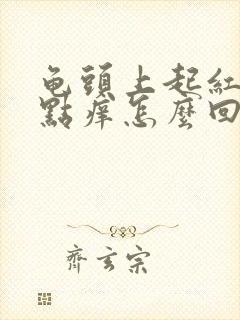 龟頭上起紅
點痒怎麼回
齊玄宗